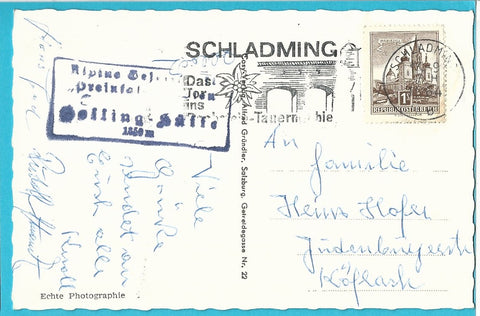 SCHLADMING
Das
Tor
ins
Tauern
Alpine Ges.
Preintal
Golling-Hütte
1650 m
REPUBLIK ÖSTERREICH
1S
Alfred Gründler, Salzburg, Getreidegasse Nr. 22
Viele
Grüße
sendet an
Euch alle
Knoll
An
Familie
Heinz Hofer
Judenburgerstr
Köflach
Echte Photographie